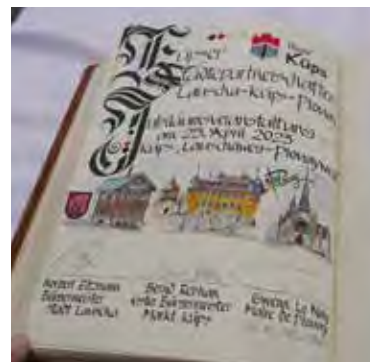 Markt
Küps
Städtepartnerschaften
Lauscha-Küps-Plouay
Jubiläumsveranstaltung
am 23. April 2023
Küps, Lauschaer-Plouayweg
Bürgermeister
Stadt Lauscha
Bernd Rebhan
erster Bürgermeister
Markt Küps
Gwenn Le Nay
Maire de Plouay